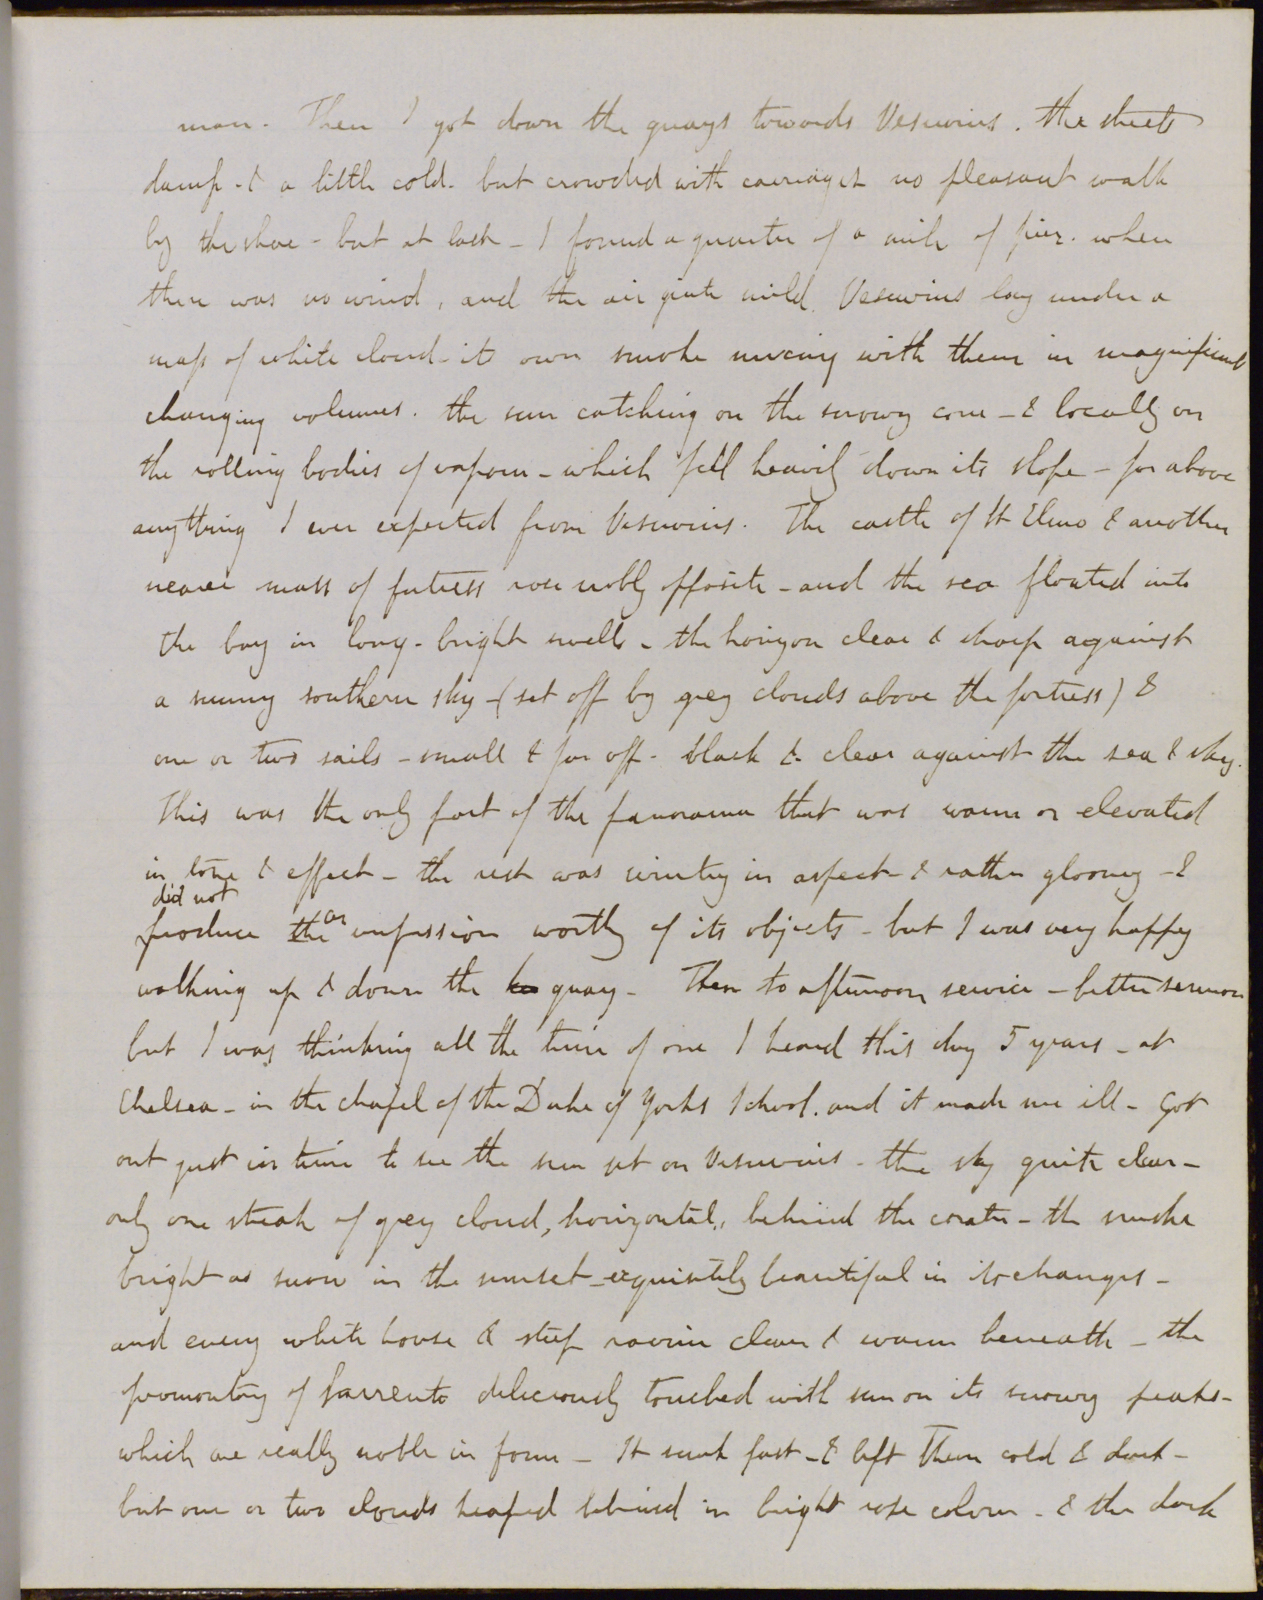 man. Then I got down the quays towards Vesuvius. The streets
damp - & a little cold - but crowded with carriages no pleasant walk
by the shore - but at last - I found a quarter of a mile of pier. when
there was no wind, and the air quite mild. Vesuvius lay under a
mass of white cloud - its own smoke mixing with them in magnificent
changing volumes. the sun catching on the snowy cone - & locally on
the rolling bodies of vapour - which fell heavily down its slope - far above
anything I ever expected from Vesuvius. The castle of St Elmo & another
nearer mass of fortress rose nobly opposite - and the sea floated into
the bay in long - bright swells - the horizon clear & sharp against
a sunny southern sky - (set off by grey clouds above the fortress) &
one or two sails - small & far off - black & clear against the sea & sky.
This was the only part of the panorama that was warm or elevated
in tone & effect - the rest was wintry in aspect - & rather gloomy - &
did not
produce the an impression worthy of its objects - but I was very happy
walking up & down the quay - Then to afternoon service - better sermon
but I was thinking all the time of one I heard this day 5 years - at
Chelsea - in the chapel of the Duke of Yorks School. and it made me ill - Got
out just in time to see the sun set on Vesuvius - the sky quite clear -
only one streak of grey cloud, horizontal, behind the crater - the smoke
bright as snow in the sunset - exquisitely beautiful in its changes -
and every white house & steep ravine clear & warm beneath - the
promontory of Sorrento deliciously touched with sun on its snowy peaks -
which are really noble in form - It sunk fast - & left them cold & dark -
but one or two clouds heaped behind in bright rose colour - & the dark